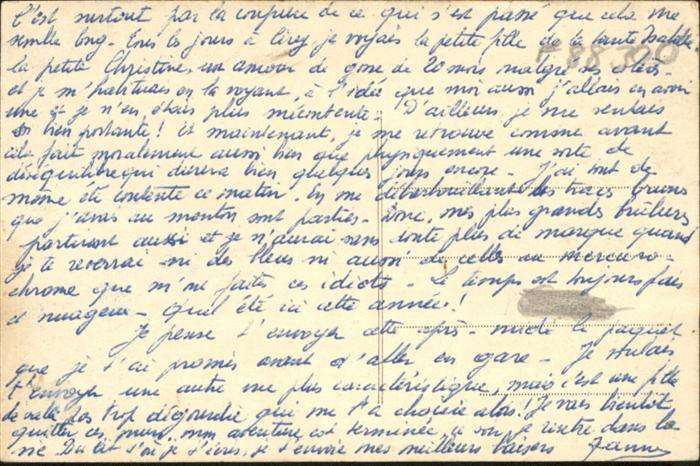 C'est surtout par la coupure de ce qui s'est passé que cela me
semble long. Tous les jours à Livry je voyais la petite fille de la tante
la petite Christine, un amour de gosse de 20 mois, malgré ses
et je m'habituais en la voyant, à l'idée que moi aussi j'allais en avoir
une et je n'en étais plus mécontente. D'ailleurs je me sentais
si bien portante ! Et maintenant, je me retrouve comme avant
cela fait moralement aussi bien que physiquement une sorte de
déséquilibre qui durera bien quelques jours encore. J'ai tout de
même été contente ce matin. En me débarbouillant les traces brunes
que j'avais au menton sont parties. Donc, mes plus grandes brûlures
partiront aussi et je n'aurai sans doute plus de marque quand
je te reverrai ni des bleus ni aussi de celles au mercuro-
chrome que m'ont faites ces idiots. Le temps est toujours frais
et nuageux. Quel été ici cette année !
Je pense t'envoyer cette après-midi le paquet
que je t'ai promis avant d'aller en gare. Je voulais
t'envoyer une autre vue plus caractéristique, mais c'est une fille
de salle pas trop dégourdie qui me l'a choisie alors ! Je vais bientôt
quitter ces murs, mon aventure est terminée, ce soir je rentre dans la
vie. D'ici je t'écris, je t'envoie mes meilleurs baisers